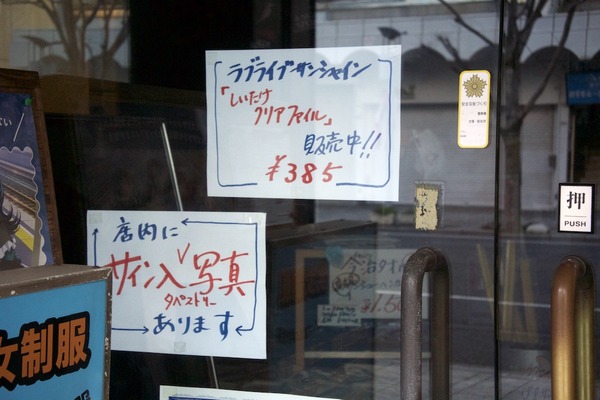 ラブライブサンシャイン
「しいたけ
クリアファイル」
販売中!!
¥385
店内に
サイン入写真
タペストリー
あります
押
PUSH
女制服
今治タオル